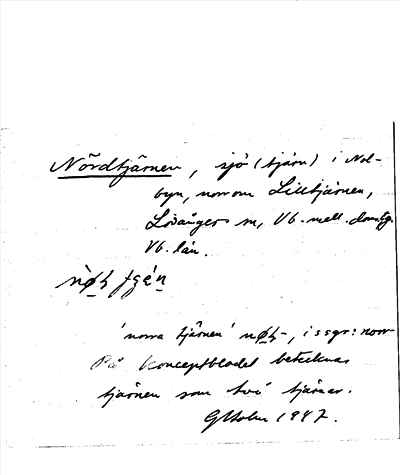 Nördtjärnen, sjö (tjärn) i Nol-
byn, norrom Lilltjärnen,
Lövångers sn, Vb. mell. domsg.
Vb. län.
'norra tjärnen' nøʂ-, i ssgr: norr
På Konceptbladet betecknas
tjärnen som två tjärnar.
GHolm 1947.